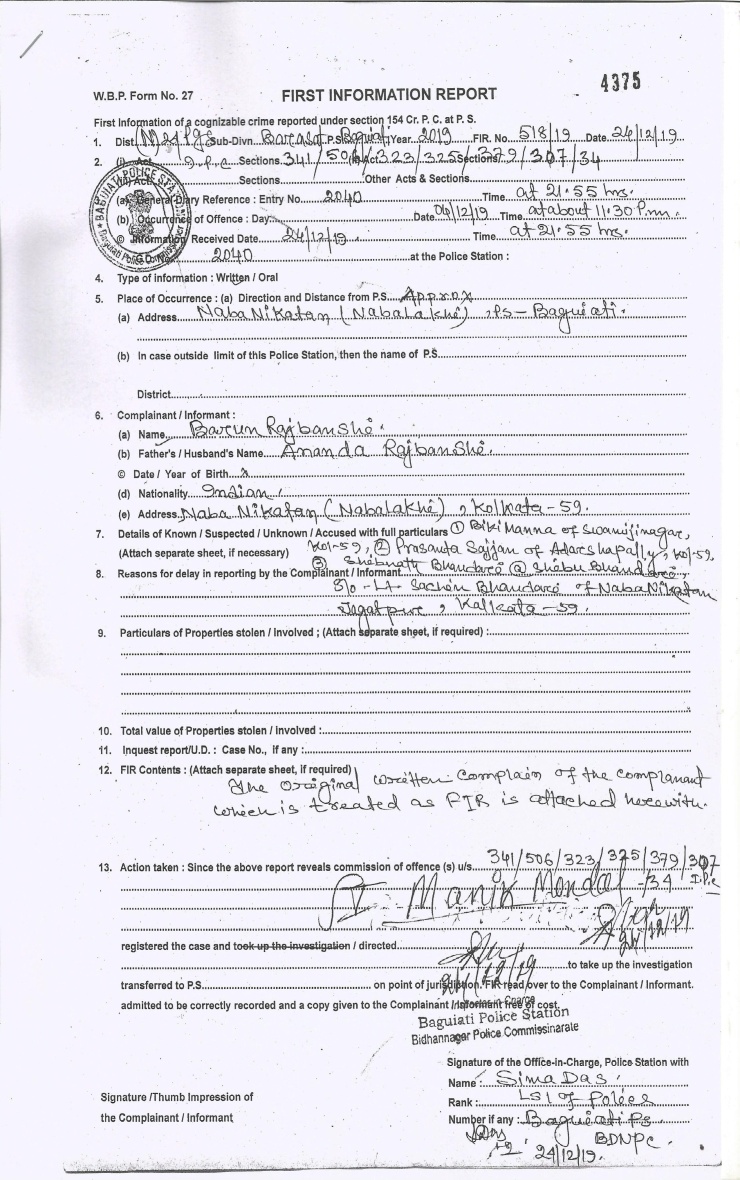 4375
W.B.P. Form No. 27 FIRST INFORMATION REPORT
First Information of a cognizable crime reported under section 154 Cr. P. C. at P. S.
1. Dist. Sub-Divn. Barasat P.S. Baguiati Year 2019 FIR. No. 518/19 Date 24/12/19
2. (i) Act I.P.C Sections 341/506 Act 323/325 Sections 379/307/34
(ii) Act Sections Other Acts & Sections
(a) General Diary Reference : Entry No. 2040 Time at 21.55 hrs.
(b) Occurrence of Offence : Day Date 04/12/19 Time at about 11:30 P.m.
© Information Received Date 24/12/19 Time at 21.55 hrs.
2040 at the Police Station :
BAGUIATI POLICE STATION
4. Type of information : Written / Oral
5. Place of Occurrence : (a) Direction and Distance from P.S. Approx
(a) Address Naba Nikatan (Nabalakhi) , Ps - Baguiati.
(b) In case outside limit of this Police Station, then the name of P.S.
District
6. Complainant / Informant :
(a) Name Barun Rajbanshi.
(b) Father's / Husband's Name Ananda Rajbanshi.
© Date / Year of Birth x
(d) Nationality Indian
(e) Address Naba Nikatan (Nabalakhi) , Kolkata - 59.
7. Details of Known / Suspected / Unknown / Accused with full particulars ① Biki Manna of Swamijinagar,
(Attach separate sheet, if necessary) Kol-59, ② Prasanta Sajjan of Adarshapally, Kol-59.
③ Shebnath Bhandari @ Shebu Bhandari,
8. Reasons for delay in reporting by the Complainant / Informant
S/o - Lt Sachin Bhandari of Naba Nikatan
Jagatpur, Kalkata - 59.
9. Particulars of Properties stolen / Involved ; (Attach separate sheet, if required) :
10. Total value of Properties stolen / involved :
11. Inquest report/U.D. : Case No., if any :
12. FIR Contents : (Attach separate sheet, if required)
The original written complain of the complanant
which is treated as FIR is attached herewith.
13. Action taken : Since the above report reveals commission of offence (s) u/s. 341/506/323/325/379/307
/34 I.P.C
SI Manik Mondal
24/12/19
registered the case and took up the investigation / directed
to take up the investigation
24/12/19
transferred to P.S. on point of jurisdiction. FIR read over to the Complainant / Informant.
admitted to be correctly recorded and a copy given to the Complainant / Informant free of cost.
Baguiati Police Station
Bidhannagar Police Commissinarate
Signature of the Office-in-Charge, Police Station with
Name : Sima Das
Signature /Thumb Impression of
Rank : LSI of Police
the Complainant / Informant
Number if any : Baguiati Ps
BDNPC.
24/12/19.